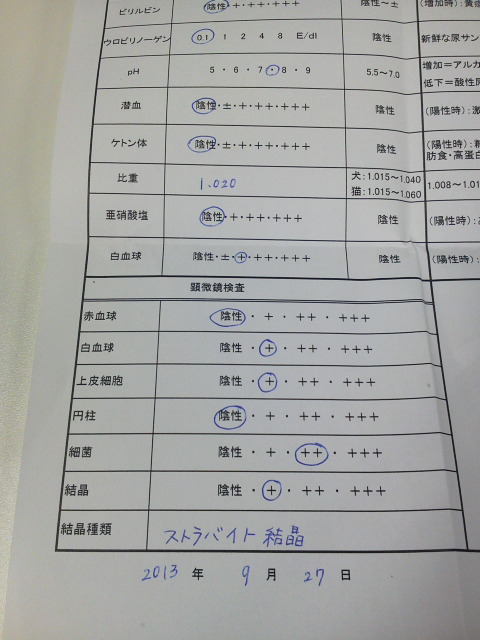 ビリルビン 陰性・+・++・+++ 陰性～± (増加時)：黄疸
ウロビリノーゲン 0.1 1 2 4 8 E/dl 陰性 新鮮な尿サン
pH 5・6・7・8・9 5.5～7.0 増加＝アルカ
低下＝酸性尿
潜血 陰性・±・+・++・+++ 陰性 (陽性時)：激
ケトン体 陰性・±・+・++・+++ 陰性 (陽性時)：
肪食・高蛋白
比重 1.020 犬：1.015～1.040 1.008～1.01
猫：1.015～1.060
亜硝酸塩 陰性・+・++・+++ 陰性 (陽性時)：
白血球 陰性・±・+・++・+++ 陰性 (陽性時)：
顕微鏡検査
赤血球 陰性・+・++・+++
白血球 陰性・+・++・+++
上皮細胞 陰性・+・++・+++
円柱 陰性・+・++・+++
細菌 陰性・+・++・+++
結晶 陰性・+・++・+++
結晶種類 ストラバイト結晶
2013 年 9 月 27 日